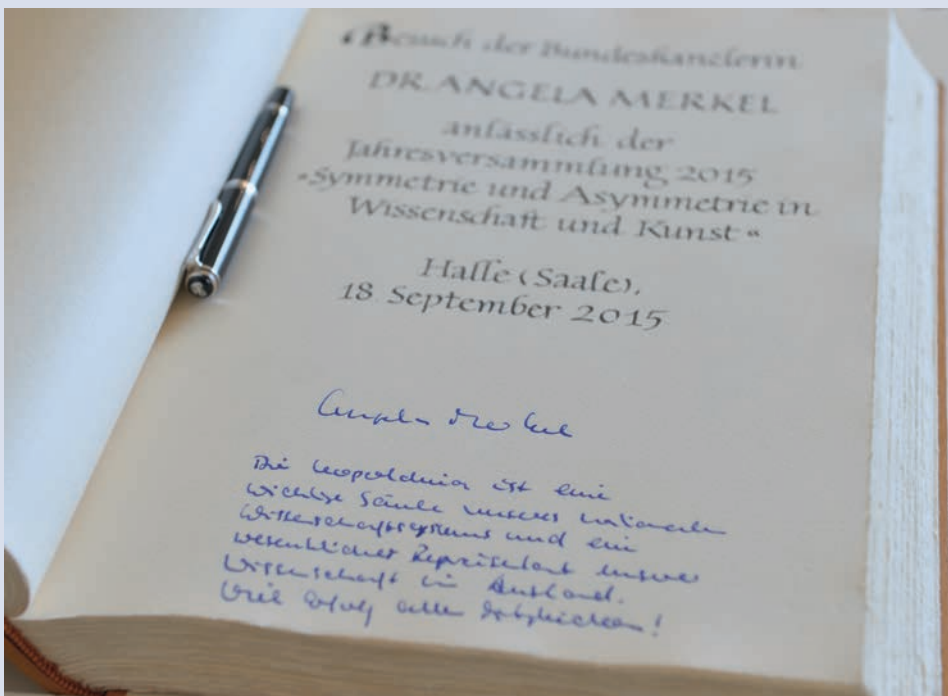 Besuch der Bundeskanzlerin
DR. ANGELA MERKEL
anlässlich der
Jahresversammlung 2015
»Symmetrie und Asymmetrie in
Wissenschaft und Kunst«
Halle (Saale),
18. September 2015
Angela Merkel
Die Leopoldina ist eine
wichtige Säule unseres nationalen
Wissenschaftssystems und ein
wesentlicher Repräsentant unserer
Wissenschaft im Ausland.
Viel Erfolg allen Mitgliedern!